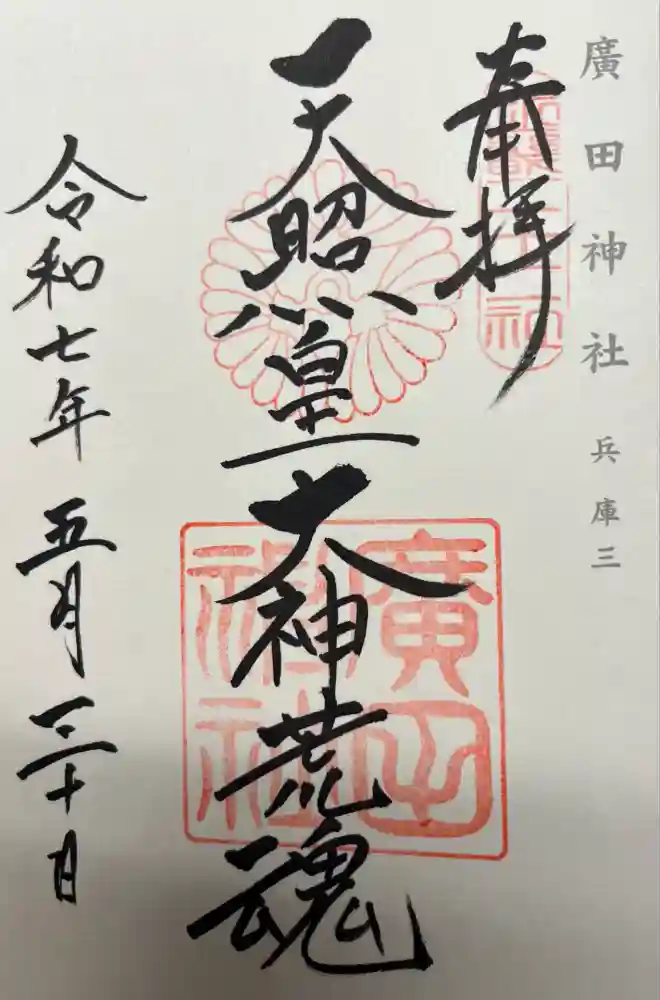 廣田神社 兵庫三
奉拝
天照皇大神荒魂
廣田
神社
令和七年 五月 三十日